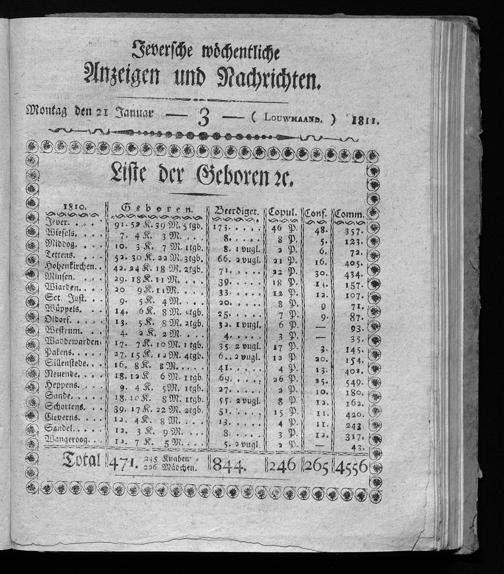 Jeversche wöchentliche
Anzeigen und Nachrichten.
Montag den 21 Januar — 3 — ( LOUWMAAND. ) 1811.
Liste der Geboren ꝛc.
1810. Geboren. Beerdiget. Copul. Conf. Comm.
Jever. . . . 91. 52 K. 39 M. 5 tgb. 173. . . . . 46 P. 48. 357.
Wiefels. . . . 7. 4 K. 3 M. . . 8. . . . . 8 P. 5. 123.
Middog. . . . 10. 3 K. 7 M. 1tgb. 8. 1 vugl. 2 P. 6. 72.
Tettens. . . . 52. 30 K. 22 M. 3tgb. 66. 2 vugl. 21 P. 16. 405.
Hohenkirchen. . 42. 24 K. 18 M. 2tgb. 71. . . . . 22 P. 30. 434.
Minsen. . . . 29. 18 K. 11 M. . . 39. . . . . 18 P. 14. 157.
Wiarden. . . . 20 9 K. 11 M. . . 33. . . . . 12 P. 12. 107.
Sct Jost. . . . 9. 5 K. 4 M. . . 20. . . . . 8 P. 9 71.
Wüppels. . . . 14. 6 K. 8 M. 25. . . . . 7 P. 9. 87.
Oldorf. . . . 13. 5 K. 8 M. 2tgb. 32. 1 vugl. 6 P. — 93.
Westrum. . . . 4. 2 K. 2 M. . . 4. . . . . 3 P. — 35.
Waddewarden. 17. 7 K. 10 M. 1 tgb. 35. 2 vugl. 17 P. 3. 145.
Pakens. . . . 27. 15 K. 12 M. 4tgb. 6. . 2 vugl. 12 P. 20. 154.
Sillenstede. . . 16. 8 K. 8 M. . . 41. . . . . 4 P. 13. 402.
Neuende. . . . 18. 12 K. 6 M. 1 tgb. 69. . . . . 26 P. 25. 549.
Heppens. . . . 9. 4 K. 5 M. 1 tgb. 27. . . . . 2 P. 10. 180.
Sande. . . . 18. 10 K. 8 M. 55. 2 vugl. 8 P. 12. 162.
Schortens. . . . 39. 17 K. 22 M. 2tgb. 51. . . . . 15 P. 11. 420.
Cleverns. . . . 12. 4 K. 8 M. . . 13. . . . . 4 P. 11. 243
Sandel. . . . 12. 3 K. 9 M. . . 8. . . . . 3 P. 12. 317.
Wangeroog. . . 12. 7 K. 5 M. . . 5. 2 vugl. 2 P. 43.
Total 471. 245 Knaben. 226 Mädchen. 844. 246 265 4556